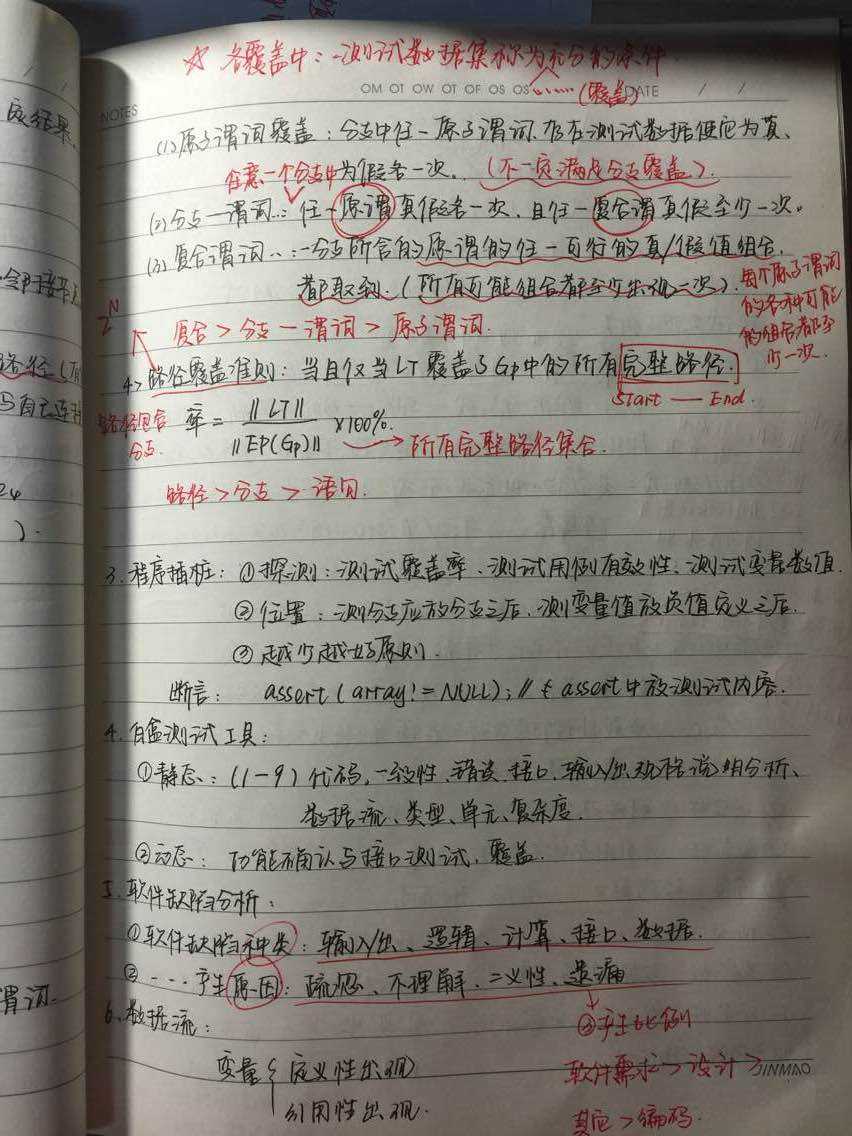 ☆ 各覆盖中：一测试数据集称为充分的条件
NOTES
OM OT OW OT OF OS OS
……(覆盖)
DATE / /
(1)原子谓词覆盖：分支中任一原子谓词,存在测试数据使它为真、
任意一个分支中为假各一次。(不一定满足分支覆盖).
(2)分支一谓词..：任一原谓真假各一次,且任一复合谓真假至少一次。
(3)复合谓词..：一分支所含的原谓的任一可行的真/假值组合,
都取到.(所有可能组合都至少出现一次).
每个原子谓词
的各种可能
的组合都至
少一次.
2^N
复合 > 分支一谓词 > 原子谓词.
4> 路径覆盖准则：当且仅当LT覆盖了Gp中的所有完整路径.
Start — End.
路径包含
分支.
率 = ‖LT‖ / ‖EP(Gp)‖ ×100%. → 所有完整路径集合.
路径 > 分支 > 语句.
3.程序插桩：①探测：测试覆盖率、测试用例有效性、测试变量数值.
②位置：测分支应放分支之后,测变量值放负值定义之后.
③越少越好原则.
断言： assert(array!=NULL); // 在assert中放测试内容.
4.白盒测试工具：
①静态：(1-9)代码,一致性,错误,接口,输入/出,规格说明分析、
数据流、类型、单元、复杂度.
②动态：功能确认与接口测试,覆盖.
5.软件缺陷分析：
①软件缺陷种类：输入/出、逻辑、计算、接口、数据.
②····产生原因：疏忽、不理解、二义性、遗漏
6.数据流：
③产生比例
变量{定义性出现
引用性出现.
软件需求>设计>
其它>编码.
JINMAO